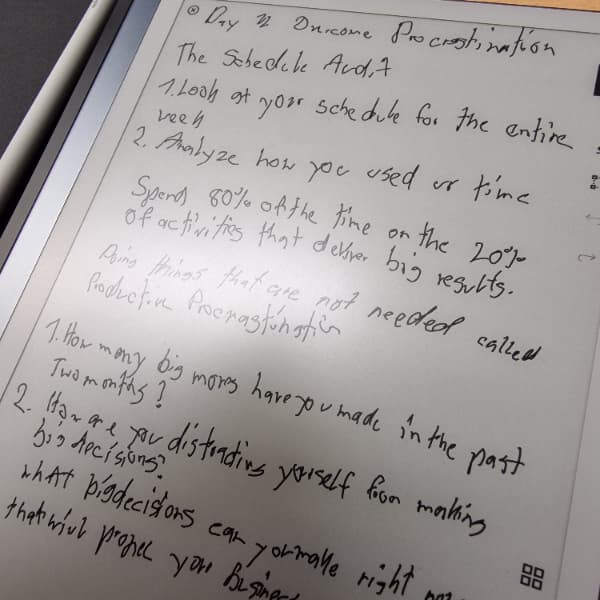 Day 2 Overcome Procrastination
The Schedule Audit
1. Look at your schedule for the entire
week
2. Analyze how you used ur time
Spend 80% of the time on the 20%
of activities that deliver big results.
Doing things that are not needed called
Productive Procrastination
1. How many big moves have you made in the past
Two months?
2. How are you distracting yourself from making
big decisions?
what big decisions can you make right
that will propel your